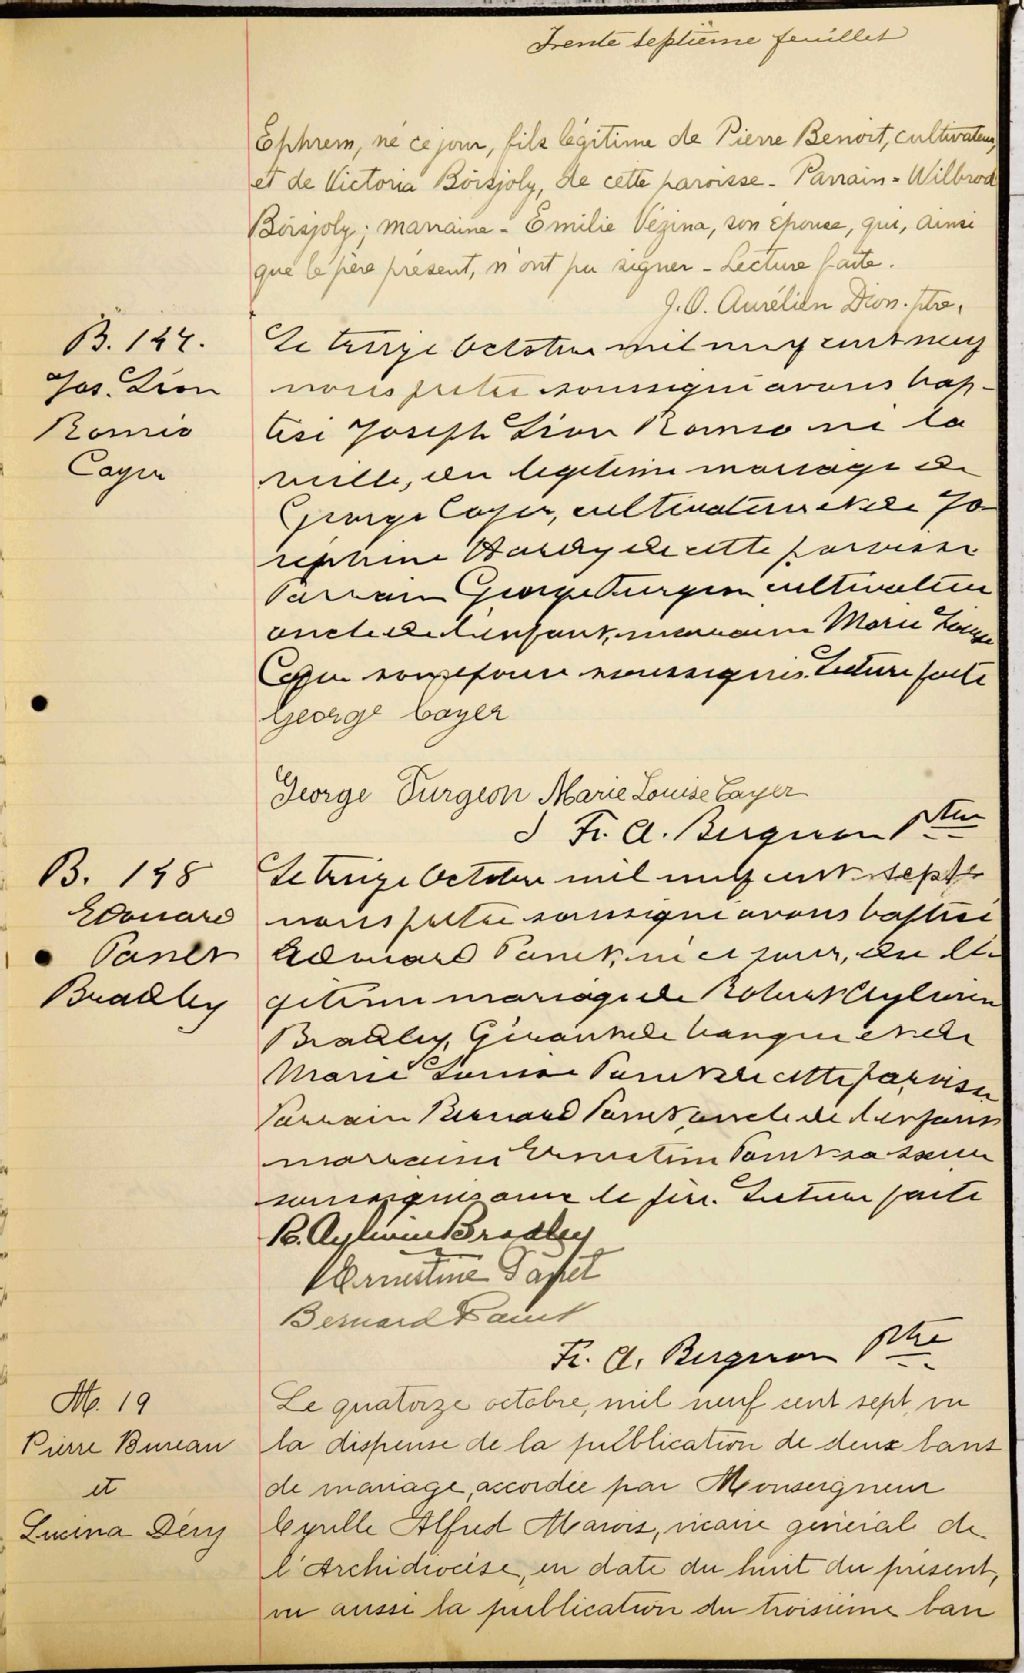 Trente septième feuillet
Ephrem, né ce jour, fils légitime de Pierre Benoit, cultivateur,
et de Victoria Boisjoly, de cette paroisse - Parrain - Wilbrod
Boisjoly; marraine - Emilie Vézina, son épouse, qui, ainsi
que le père présent, n'ont pu signer - Lecture faite.
J. O. Aurélien Dion. ptre.
B. 147.
Jos. Léon
Roméo
Cayer
Le treize Octobre mil neuf cent neuf
nous prêtre soussigné avons bap-
tisé Joseph Léon Romeo né la
veille, du légitime mariage de
George Cayer, cultivateur et de Jo
séphine Hardy de cette paroisse
Parrain George Turgeon cultivateur
oncle de l'enfant, marraine Marie Louise
Cayer son épouse soussignés. Lecture faite
George Cayer
George Turgeon Marie Louise Cayer
J Fr. A. Bergeron Ptre
B. 148
Edouard
Panet
Bradley
Le treize Octobre mil neuf cent sept
nous prêtre soussigné avons baptisé
Edouard Panet, né ce jour, du lé-
gitime mariage de Robert Aylwin
Bradley, Gérant de banque et de
Marie Louise Panet de cette paroisse
Parrain Bernard Panet, oncle de l'enfant
marraine Ernestine Panet sa soeur
soussignés avec le père. Lecture faite
R. Aylwin Bradley
Ernestine Panet
Bernard Panet
Fr. A. Bergeron Ptre
M. 19
Pierre Bureau
et
Lucina Déry
Le quatorze octobre, mil neuf cent sept, vu
la dispense de la publication de deux bans
de mariage, accordée par Monseigneur
Cyrille Alfred Marois, vicaire général de
l'Archidiocèse, en date du huit du présent,
vu aussi la publication du troisième ban